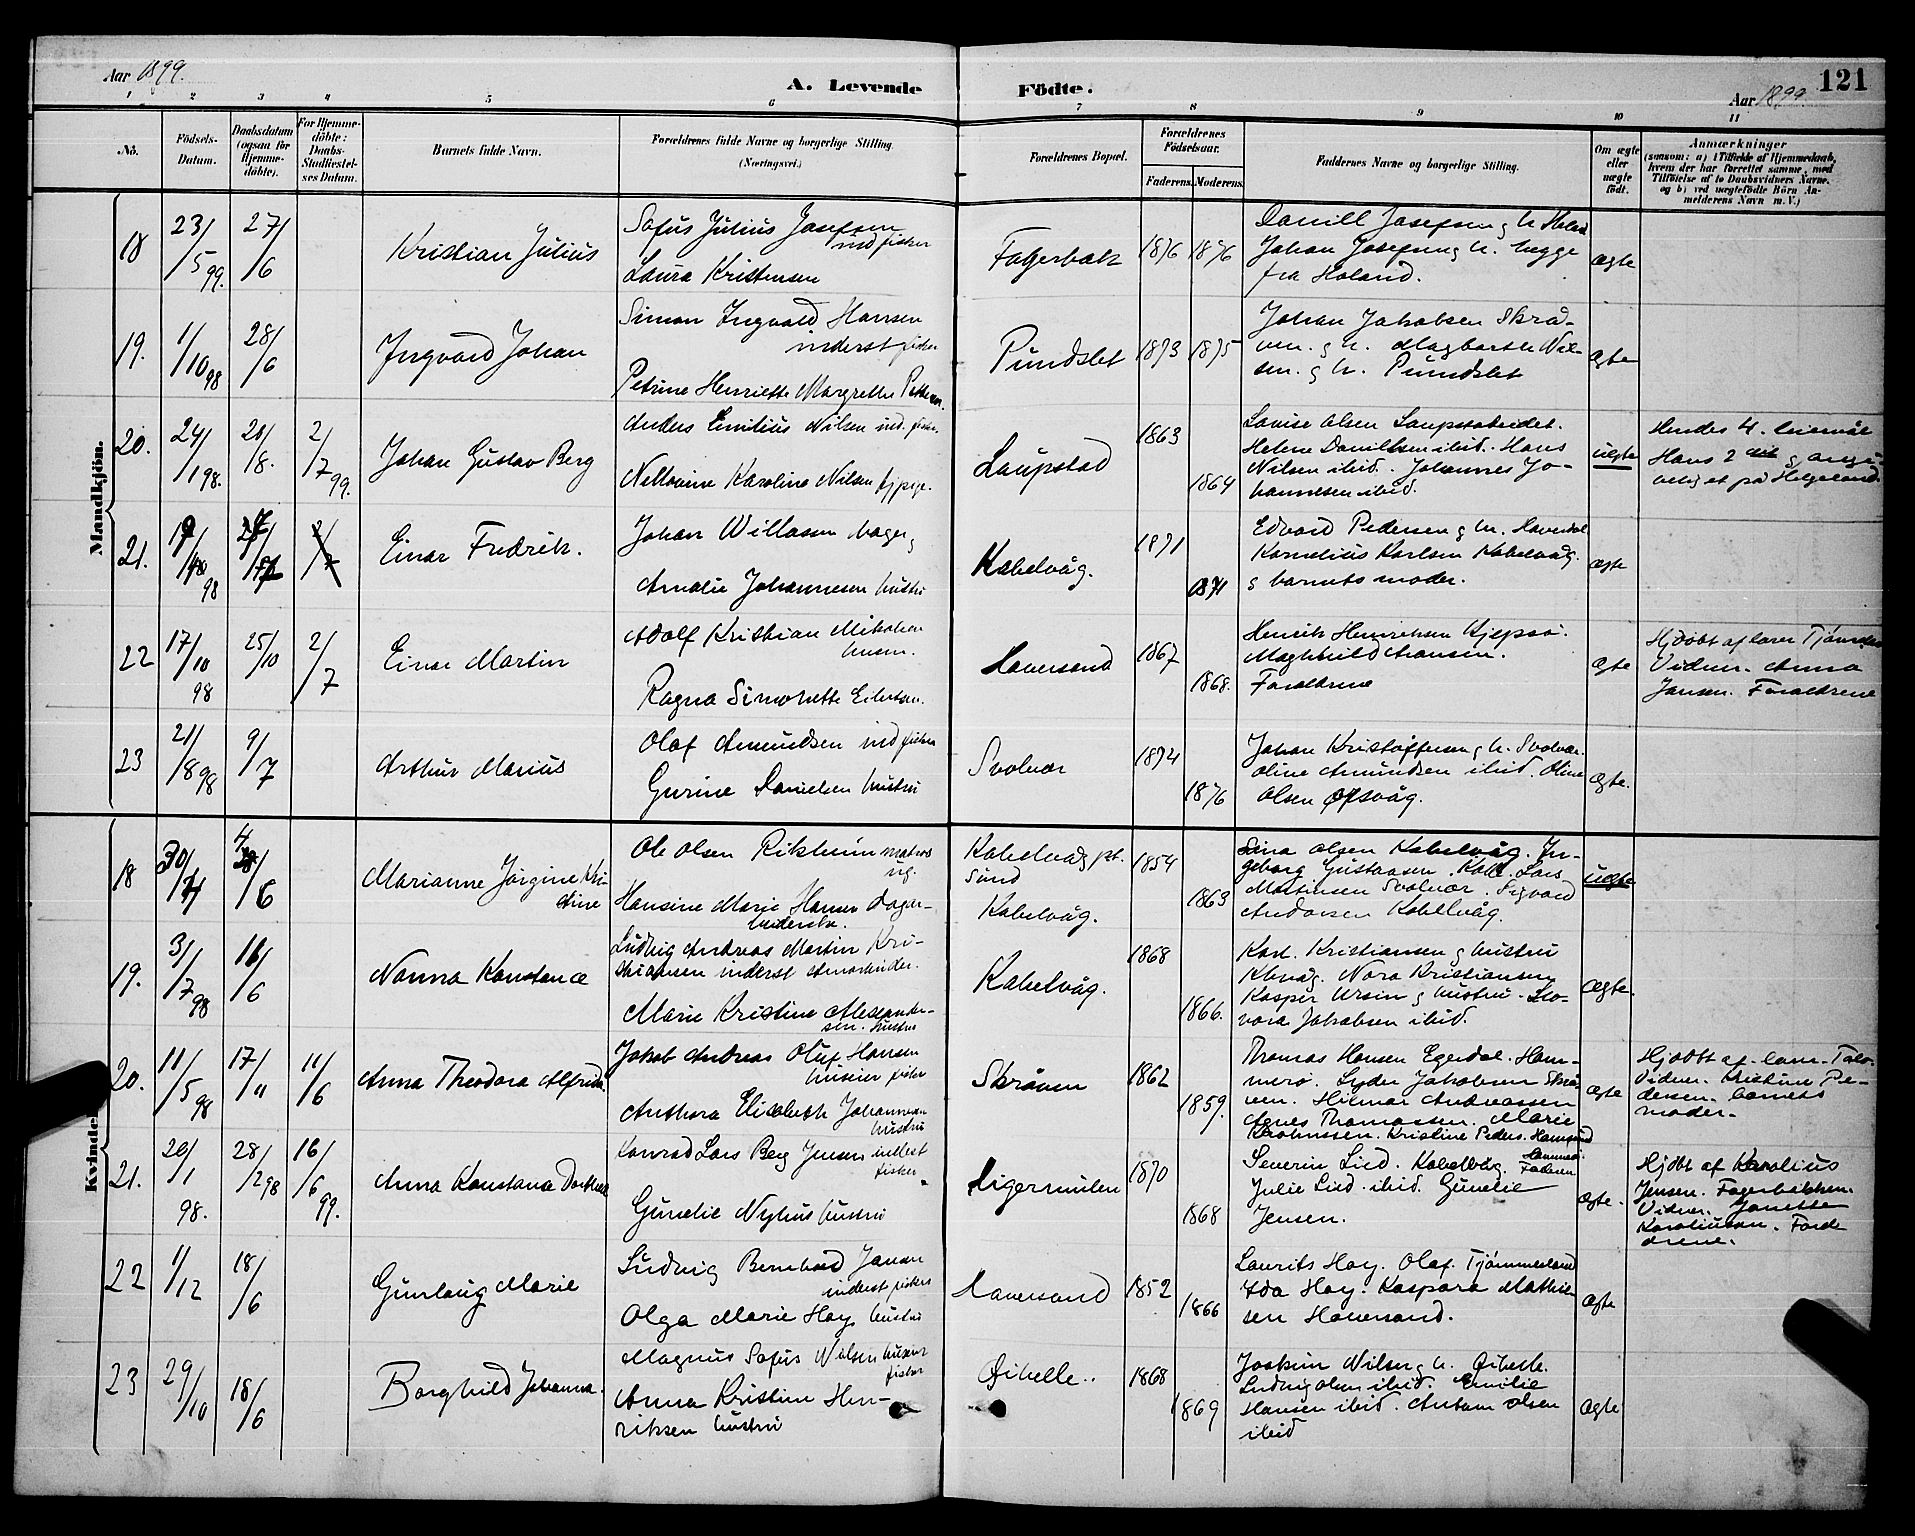 Aar 1899.
A. Levende Födte.
Aar 1899.
121
1 2 3 4 5 6 7 8 9 10 11
No.
Födsels-Datum.
Daabsdatum (ogsaa for Hjemme-döbte).
For Hjemme-döbte: Daabs-Stadfæstel-ses Datum.
Barnets fulde Navn.
Forældrenes fulde Navne og borgerlige Stilling. (Næringsvei.)
Forældrenes Bopæl.
Forældrenes Födselsaar.
Faderens. Moderens.
Faddernes Navne og borgerlige Stilling.
Om ægte eller uægte födt.
Anmærkninger
(saasom: a) i Tilfælde af Hjemmedaab, hvem der har forrettet samme, med Tilföielse af to Daabsvidners Navne, og b) ved uægtefödte Börn Anmelderens Navn m. V.)
Mandkjön.
18 23/5 99. 27/6
Kristian Julius
Sofus Julius Josefsen
ind fisker
Laura Kristensen
Fagerbak
1876 1876
Daniel Josefsen g h. Holand
Johan Josefsen g h. begge
fra Holand.
ægte
19. 1/10 98 28/6
Ingvard Johan
Simon Ingvald Hansen
inderst fisker
Petrine Henriette Margrethe
Pundslet
1873 1875
Johan Jakobsen Skrå-
ven. g h. Nil-
sen. g h. Pundslet
ægte
20. 24/1 98. 21/8. 2/7 99.
Johan Gustav Berg
Anders Emilius Nilsen ind. fisker.
Karoline Nilsen
Laupstad
1863
1864
Lovise Olsen Laupstadeidet.
Helene Danielsen ibid. Hans
Nilsen ibid. Johannes Jo-
hannesen ibid.
uægte
Hendes 4. leiermål
Hans 2
på Helgeland.
21. /98
Einar Fredrik.
Johan Willasen bager g
Amalie Johannesen hustru
Kabelvåg.
1871
1871
Edvard Pedersen g h.
Kornelius Karlsen Kabelvåg.
g barnets moder.
ægte
22 17/10 98 25/10 2/7
Einar Martin
Adolf Kristian Mikalsen
Ragna Simonette Eilertsen.
Haversand
1867
1868.
Henrik Henriksen
Maghhild Hansen.
Forældrene
ægte
Hjdöbt af lærer
Vidner. Anna
Jansen. Forældrene
23 21/8 98 9/7
Arthur Marius
Olaf Amundsen ind fisker
Gurine Danielsen hustru
Svolvær
1874
1876
Johan Kristoffersen g h. Svolvær.
Oline Amundsen ibid. Oline
Olsen Ørsvåg.
ægte.
Kvindekjön.
18 30/4 /6
Marianne Jörgine Kri-
stine
Ole Olsen Rikheim matros
ug.
Hansine Marie Hansen dagar-
beiderske.
Kabelvåg pt.
Sund
Kabelvåg.
1854
1863
Olsen Kabelvåg. In-
geborg Gustavsen. Kabe. Lars
Martinsen Svolvær. Sigvard
Andorsen Kabelvåg.
uægte
19. 3/7 98 16/6
Nanna Konstance
Ludvig Andreas Martin Kri-
stiansen inderst
Marie Kristine Alexander-
sen. hustru
Kabelvåg.
1868
1866.
Karl. Kristiansen g hustru
Nora Kristiansen
Kasper Ursin g hustru.
Jakobsen ibid.
ægte.
20. 11/5 98 17/11 11/6
Anna Theodora Alfrida.
Jakob Andreas Oluf Hansen
huseier fisker
Anthora Elisabeth Johannesen
hustru
Skråven
1862
1859.
Thomas Hansen Egerdal. Ham-
merö. Lyder Jakobsen Skrå-
ven. Hilmar Andreassen
Agnes Thomassen. Marie
Kristine Peders.
ægte
Hjdöbt af
Vidner. Kristine Pe-
dersen. barnets
moder.
21. 20/1 98. 28/2 98 16/6 99.
Anna Konstana Dorthea
Konrad Lars Berg Jensen inderst
fisker
Gunelie Nyhus hustru
Digermulen
1870
1868
Severin Lied. Kabelvåg.
Julie Lied. ibid. Gunelie
Jensen.
ægte.
Hjdbt af Karolius
Jensen. Fagerbakken.
Vidner. Janette
Karoliussen. Foræl-
drene.
22 1/12 18/6
Gunlaug Marie
Ludvig Bernhard Jansen
inderst fisker
Olga Marie Hay hustru
Haversand
1852
1866
Laurits Hay. Olaf.
Ida Hay. Kaspara Mathi-
sen Haversand.
ægte
23 29/10 18/6
Borghild Johanna.
Magnus Sofus Nilsen
fisker
Anna Kristine Hen-
riksen hustru
Øihelle.
1868
1869
Joakim Nilsen g h. Øihelle.
Ludvig Olsen ibid. Emilie
Hansen ibid. Olsen
ibid
ægte